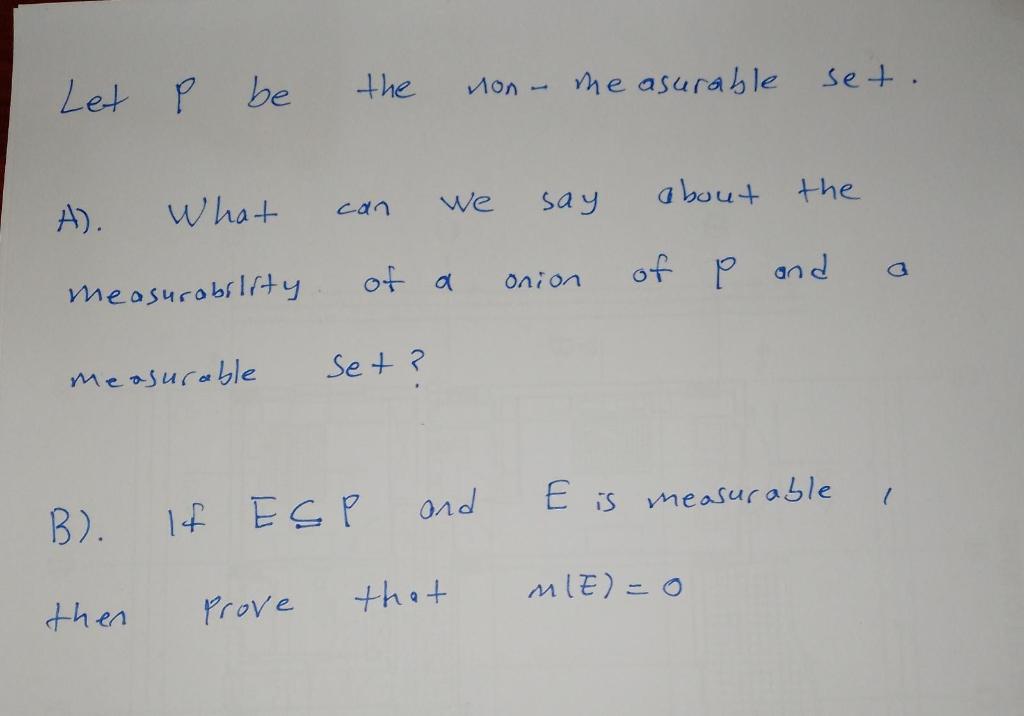 Let P be the non-measurable set.
A). What can we say about the
measurability of a onion of P and a
measurable set?
B). If E ⊆ P and E is measurable,
then prove that m(E) = 0